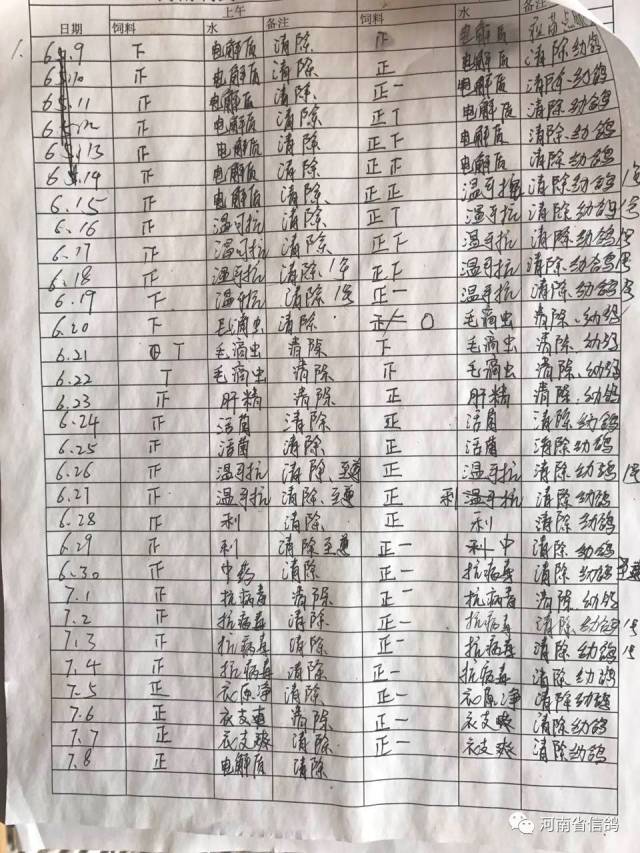 上午
日期 饲料 水 备注 饲料 水 备注
1. 6.9 下 电解质 清除 正 电解质 清除幼鸽
6.10 正 电解质 清除 正 电解质 清除.幼鸽
6.11 正 电解质 清除 正一 电解质 清除.幼鸽
6.12 正 电解质 清除 正丅 电解质 清除.幼鸽
6.13 正 电解质 清除 正下 电解质 清除.幼鸽
6.14 正 电解质 清除 正下 电解质 清除幼鸽
6.15 正 电解质 清除 正正 温可抗 清除幼鸽1号
6.16 正 温可抗 清除 正丅 温可抗 清除幼鸽1号
6.17 正 温可抗 清除 正下 温可抗 清除.幼鸽1号
6.18 正 温可抗 清除.1号 正下 温可抗 清除.幼鸽1号
6.19 下 温可抗 清除1号 正一 温可抗 清除.幼鸽1号
6.20 下 毛滴虫 清除 0 毛滴虫 清除.幼鸽
6.21 丅 毛滴虫 清除 下 毛滴虫 清除.幼鸽
6.22 丅 毛滴虫 清除 正 毛滴虫 清除.幼鸽
6.23 正 肝精 清除 正 肝精 清除.幼鸽
6.24 正 活菌 清除 正 活菌 清除幼鸽
6.25 正 活菌 清除 正 活菌 清除幼鸽
6.26 正 温可抗 清除.至尊 正 温可抗 清除幼鸽1号
6.27 正 温可抗 清除.至尊 正 利温可抗 清除幼鸽
6.28 正 利 清除 正 利 清除幼鸽
6.29 正 利 清除至尊 正一 利中 清除幼鸽
6.30 正 中药 清除 正一 抗病毒 清除幼鸽至尊
7.1 正 抗病毒 清除 正一 抗病毒 清除幼鸽
7.2 正 抗病毒 清除 正一 抗病毒 清除.幼鸽1号
7.3 正 抗病毒 清除 正一 抗病毒 清除幼鸽1号
7.4 正 抗病毒 清除 正一 抗病毒 清除幼鸽
7.5 正 衣原净 清除 正一 衣原净 清除幼鸽
7.6 正 衣支爽 清除 正一 衣支爽 清除幼鸽
7.7 正 衣支爽 清除 正一 衣支爽 清除幼鸽
7.8 正 电解质 清除
河南省信鸽